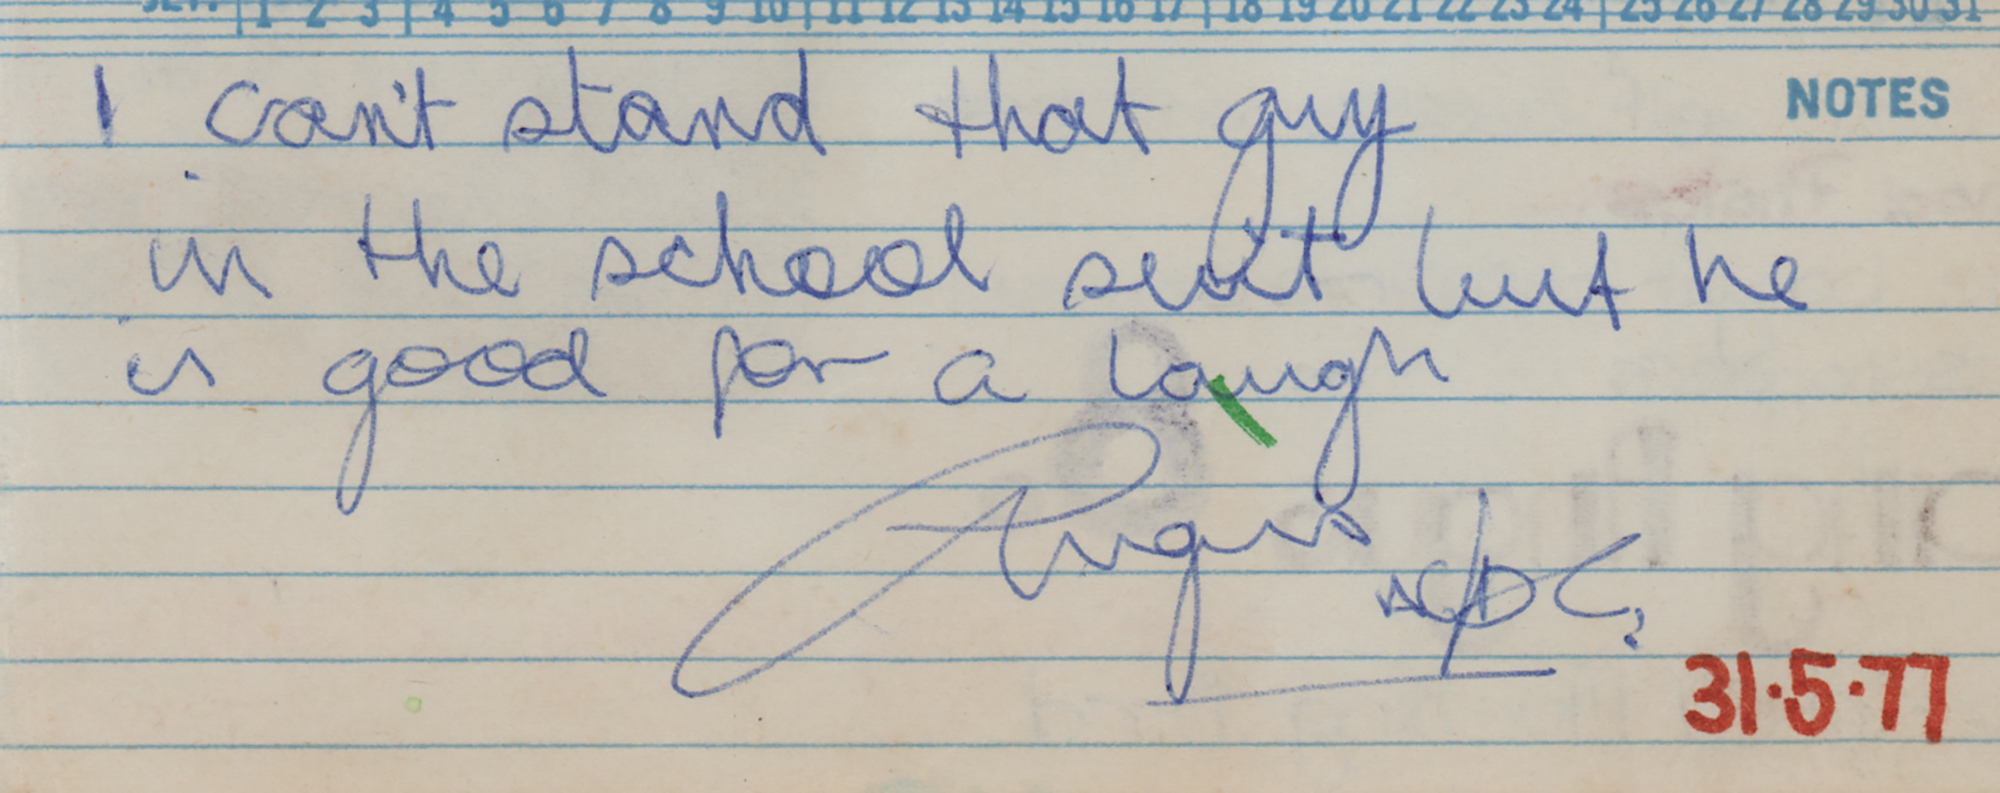 1 2 3 4 5 6 7 8 9 10 11 12 13 14 15 16 17 18 19 20 21 22 23 24 25 26 27 28 29 30 31
I can't stand that guy
NOTES
in the school suit but he
is good for a laugh
Angus
AC/DC
31·5·77